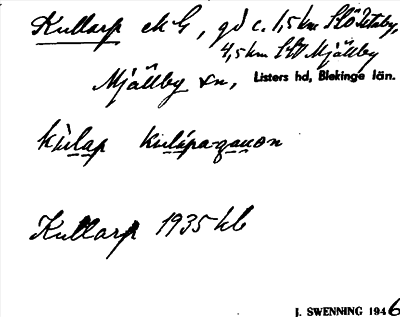 Kullarp ekG, gd c. 1,5 km SSÖ Istaby,
4,5 km SSV Mjällby
Mjällby sn, Listers hd, Blekinge län.
kulap kulépa-gauon
Kullarp 1935 kb
J. SWENNING 1946